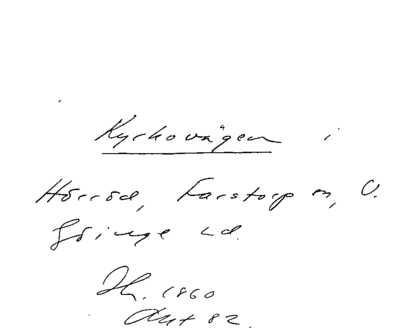 Kyrkovägen i
Hörröd, Farstorp sn, V.
Göinge hd.
Ihr. 1860
Akt 82.